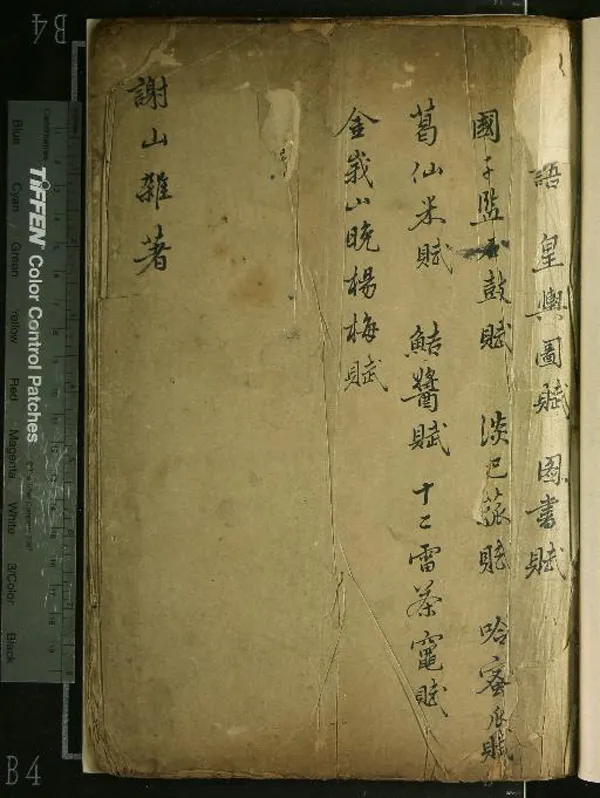 語 皇輿圖賦 圖書賦
國子監石鼓賦 淡巴菰賦 哈蜜瓜賦
葛仙米賦 鮚醬賦 十二雷茶竈賦
金峩山晚楊梅賦
謝山雜著
B4
B4
TIFFEN Color Control Patches
Blue Cyan Green Yellow Red Magenta White 3/Color Black